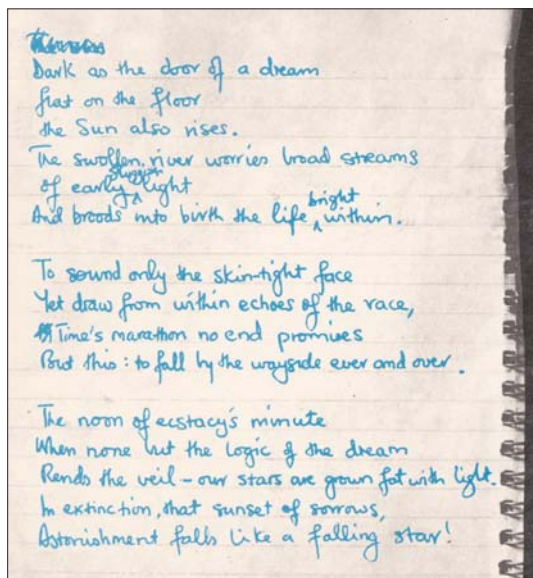 Dark as the door of a dream
flat on the floor
the Sun also rises.
The swollen river worries broad streams
of early sluggish light
And broods into birth the life bright within.
To sound only the skin-tight face
Yet draw from within echoes of the race,
Time's marathon no end promises
But this: to fall by the wayside ever and over.
The noon of ecstacy's minute
When none but the logic of the dream
Rends the veil - our stars are grown fat with light.
In extinction, that sunset of sorrows,
Astonishment falls like a falling star!